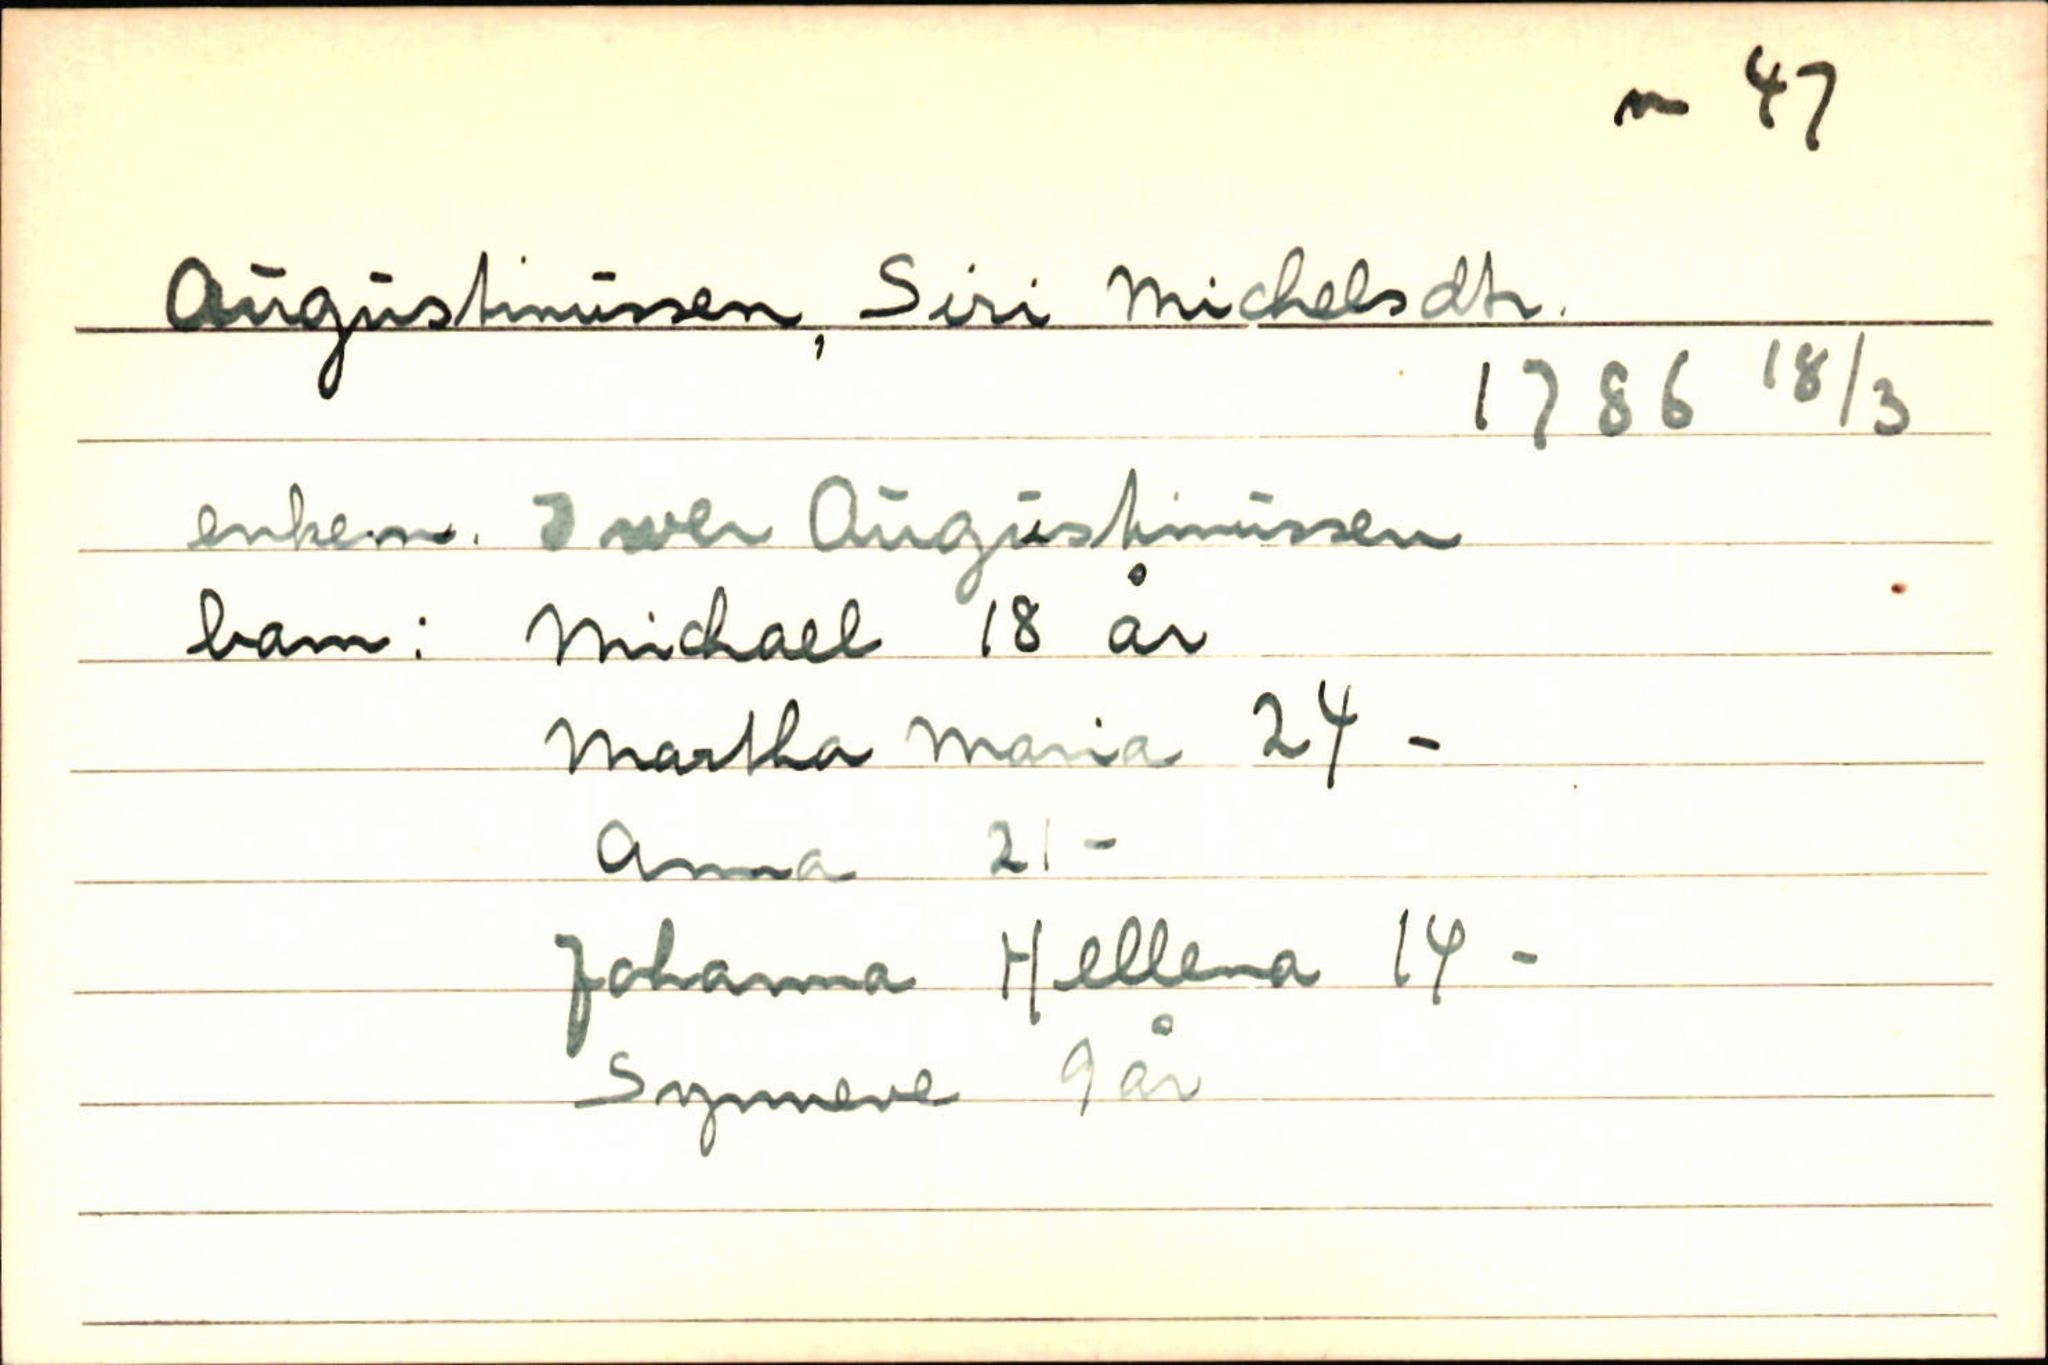 m 47
Augustinussen, Siri Michelsdtr.
1786 18/3
enkem. Iwer Augustinussen
barn: Michael 18 år
Martha Maria 24 -
Anna 21 -
Johanna Hellena 14 -
Synneve 9 år